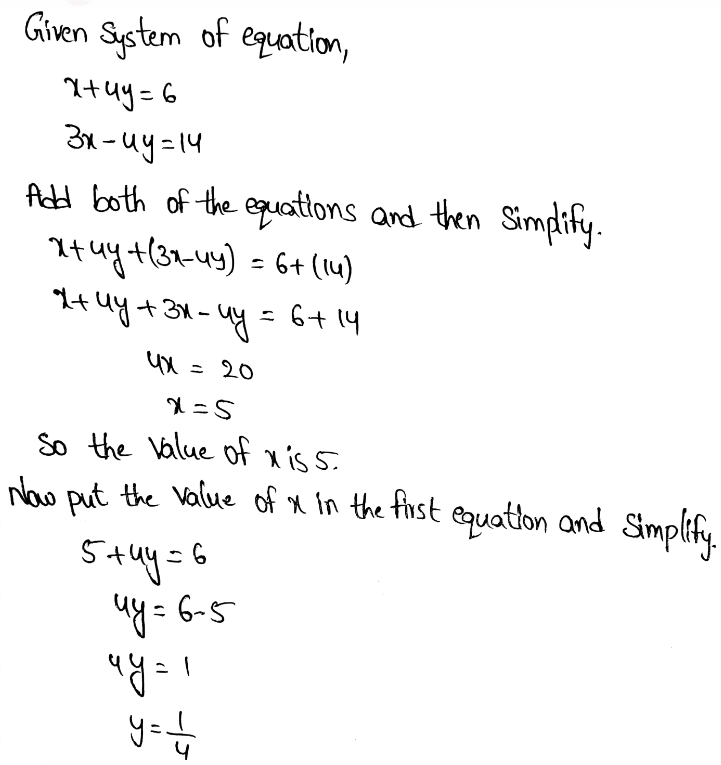 Given System of equation,
x+4y=6
3x-4y=14
Add both of the equations and then Simplify.
x+4y+(3x-4y) = 6+(14)
x+4y+3x-4y = 6+14
4x = 20
x=5
So the Value of x is 5.
Now put the Value of x in the first equation and Simplify.
5+4y=6
4y=6-5
4y=1
y=1/4